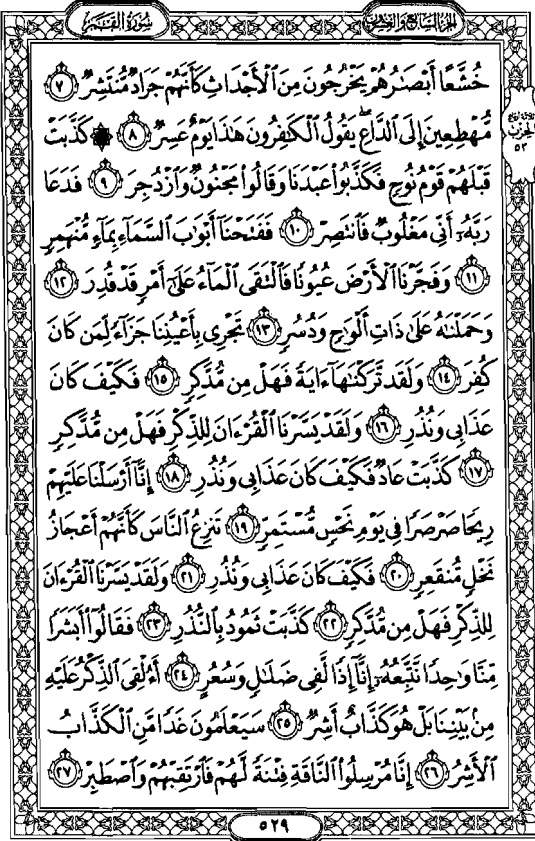 الجزء السابع والعشرون
سورة القمر
خُشَّعًا أَبْصَٰرُهُمْ يَخْرُجُونَ مِنَ ٱلْأَجْدَاثِ كَأَنَّهُمْ جَرَادٌ مُّنتَشِرٌ ۝٧
مُّهْطِعِينَ إِلَى ٱلدَّاعِ ۖ يَقُولُ ٱلْكَٰفِرُونَ هَٰذَا يَوْمٌ عَسِرٌ ۝٨ ۞ كَذَّبَتْ
قَبْلَهُمْ قَوْمُ نُوحٍ فَكَذَّبُوا۟ عَبْدَنَا وَقَالُوا۟ مَجْنُونٌ وَٱزْدُجِرَ ۝٩ فَدَعَا
رَبَّهُۥٓ أَنِّى مَغْلُوبٌ فَٱنتَصِرْ ۝١٠ فَفَتَحْنَآ أَبْوَٰبَ ٱلسَّمَآءِ بِمَآءٍ مُّنْهَمِرٍ
۝١١ وَفَجَّرْنَا ٱلْأَرْضَ عُيُونًا فَٱلْتَقَى ٱلْمَآءُ عَلَىٰٓ أَمْرٍ قَدْ قُدِرَ ۝١٢
وَحَمَلْنَٰهُ عَلَىٰ ذَاتِ أَلْوَٰحٍ وَدُسُرٍ ۝١٣ تَجْرِى بِأَعْيُنِنَا جَزَآءً لِّمَن كَانَ
كُفِرَ ۝١٤ وَلَقَد تَّرَكْنَٰهَآ ءَايَةً فَهَلْ مِن مُّدَّكِرٍ ۝١٥ فَكَيْفَ كَانَ
عَذَابِى وَنُذُرِ ۝١٦ وَلَقَدْ يَسَّرْنَا ٱلْقُرْءَانَ لِلذِّكْرِ فَهَلْ مِن مُّدَّكِرٍ
۝١٧ كَذَّبَتْ عَادٌ فَكَيْفَ كَانَ عَذَابِى وَنُذُرِ ۝١٨ إِنَّآ أَرْسَلْنَا عَلَيْهِمْ
رِيحًا صَرْصَرًا فِى يَوْمِ نَحْسٍ مُّسْتَمِرٍّ ۝١٩ تَنزِعُ ٱلنَّاسَ كَأَنَّهُمْ أَعْجَازُ
نَخْلٍ مُّنقَعِرٍ ۝٢٠ فَكَيْفَ كَانَ عَذَابِى وَنُذُرِ ۝٢١ وَلَقَدْ يَسَّرْنَا ٱلْقُرْءَانَ
لِلذِّكْرِ فَهَلْ مِن مُّدَّكِرٍ ۝٢٢ كَذَّبَتْ ثَمُودُ بِٱلنُّذُرِ ۝٢٣ فَقَالُوٓا۟ أَبَشَرًا
مِّنَّا وَٰحِدًا نَّتَّبِعُهُۥٓ إِنَّآ إِذًا لَّفِى ضَلَٰلٍ وَسُعُرٍ ۝٢٤ أَءُلْقِىَ ٱلذِّكْرُ عَلَيْهِ
مِنۢ بَيْنِنَا بَلْ هُوَ كَذَّابٌ أَشِرٌ ۝٢٥ سَيَعْلَمُونَ غَدًا مَّنِ ٱلْكَذَّابُ
ٱلْأَشِرُ ۝٢٦ إِنَّا مُرْسِلُوا۟ ٱلنَّاقَةِ فِتْنَةً لَّهُمْ فَٱرْتَقِبْهُمْ وَٱصْطَبِرْ ۝٢٧
ثلاثة أرباع
الحزب
٥٣
٥٢٩